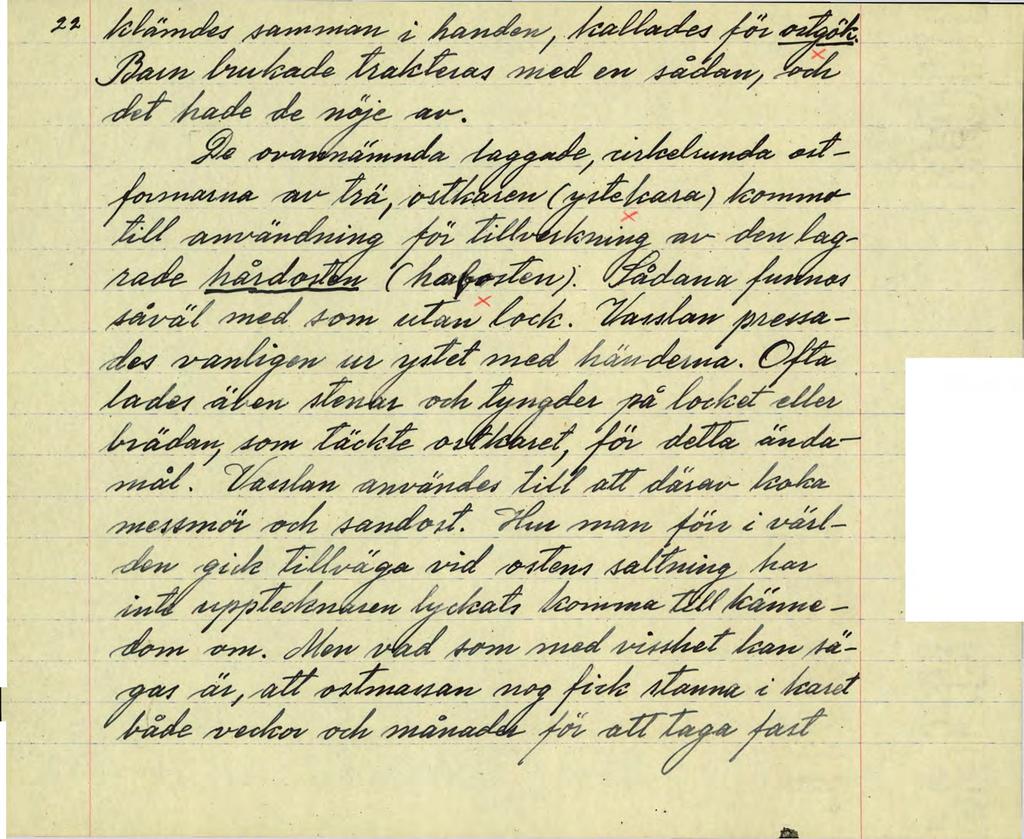 22 klämdes samman i handen, kallades för ostgök.
Barn brukade trakteras med en sådan, och
det hade de nöje av.
De ovannämnda laggade, cirkelrunda ost-
formarna av trä, ostkaren (ystekara) kommo
till användning för tillverkning av den lag-
rade hårdosten (habosten). Sådana funnos
såväl med som utan lock. Vasslan pressa-
des vanligen ur ystet med händerna. Ofta
lades även stenar och tyngder på locket eller
brädan, som täckte ostkaret, för detta ända-
mål. Vasslan användes till att därav koka
messmör och sandost. Hur man förr i värl-
den gick tillväga vid ostens saltning har
inte upptecknaren lyckats komma till känne-
dom om. Men vad som med visshet kan sä-
gas är, att ostmassan nog fick stanna i karet
både veckor och månader för att taga fast